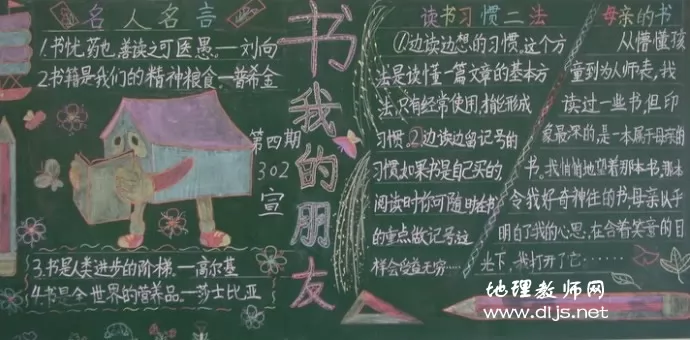 名人名言
1.书忧药也,善读之可医愚。——刘向
2.书籍是我们的精神粮食。——普希金
3.书是人类进步的阶梯。——高尔基
4.书是全世界的营养品。——莎士比亚
第四期
302
宣
书我的朋友
读书习惯二法
①边读边想的习惯,这个方
法是读懂一篇文章的基本方
法,只有经常使用,才能形成
习惯。②边读边留记号的
习惯,如果书是自己买的,
阅读时你可随时在书
的重点做记号,这
样会受益无穷……
母亲的书
从懵懂孩
童到为人师表,我
读过一些书,但印
象最深的,是一本属于母亲的
书。我悄悄地望着那本书,那本
令我好奇神往的书,母亲似乎
明白了我的心思,在含着笑意的目
光下,我打开了它……
地理教师网
www.dljs.net